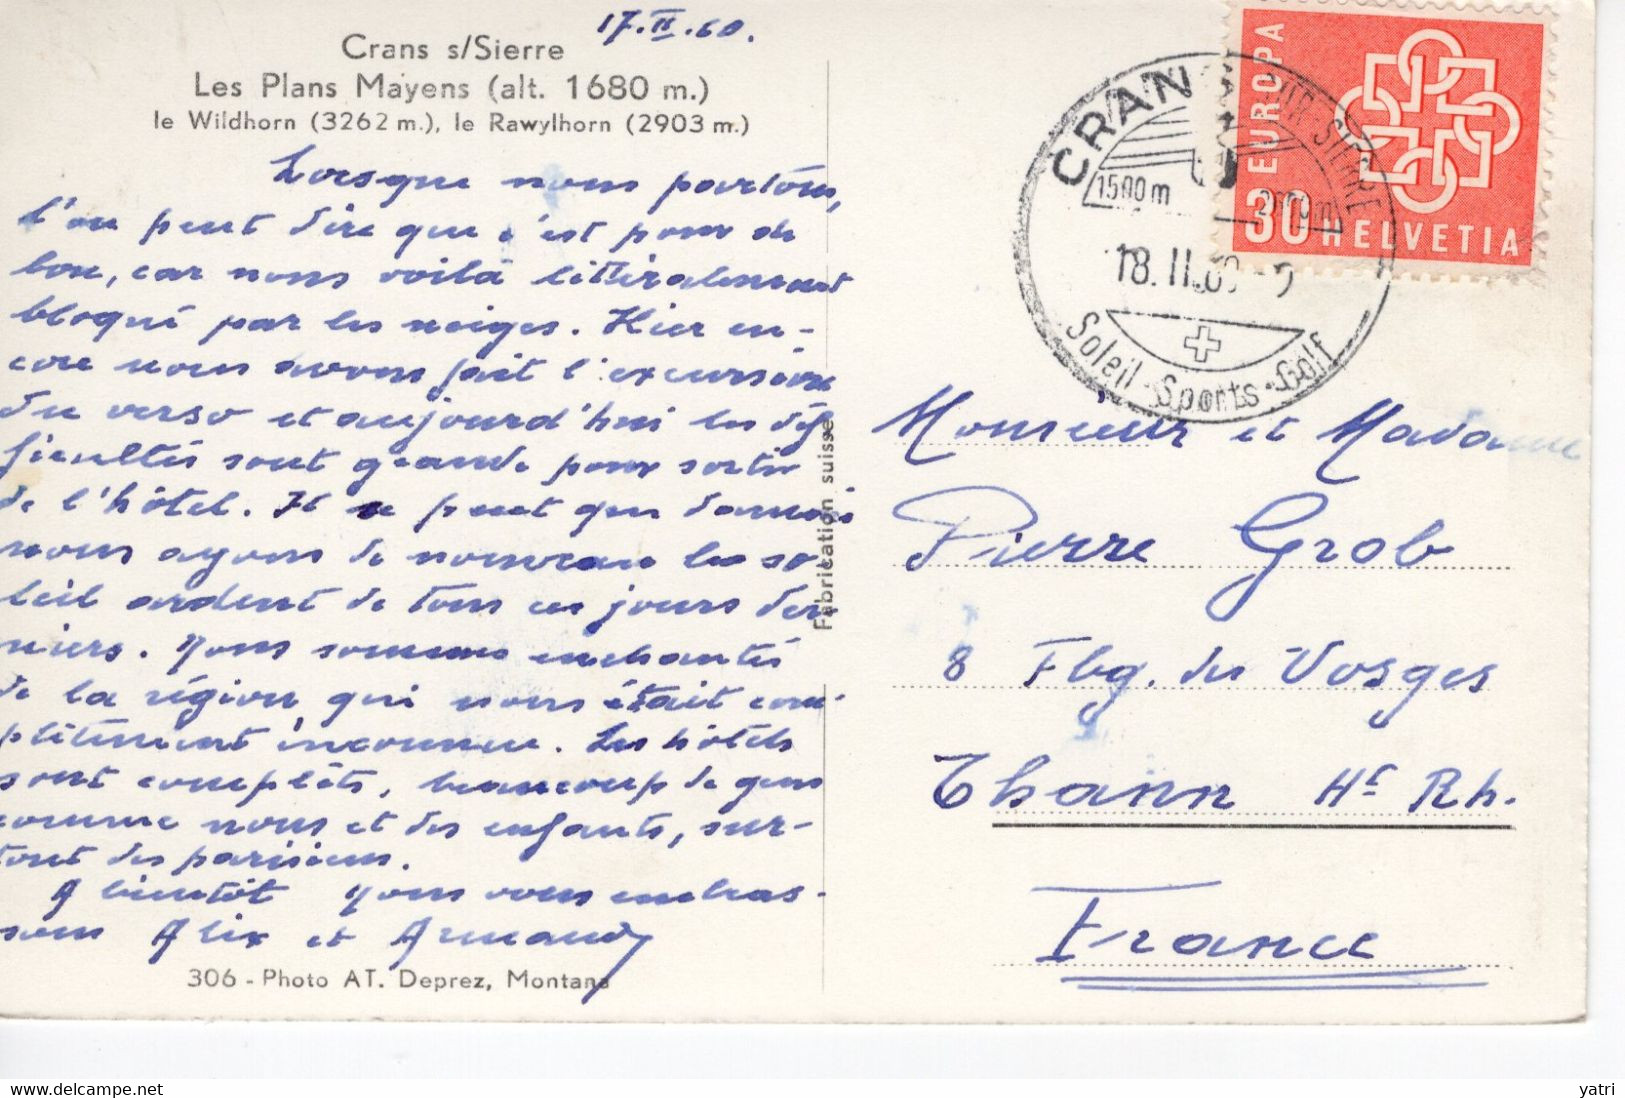 17.II.60.
Crans s/Sierre
Les Plans Mayens (alt. 1680 m.)
le Wildhorn (3262 m.), le Rawylhorn (2903 m.)
Lorsque nous partons,
l'on peut dire que c'est pour de
bon, car nous voilà littéralement
bloqué par les neiges. Hier en-
core nous avons fait l'excursion
du verso et aujourd'hui les dif
ficultés sont grande pour sortir
de l'hôtel. Il se peut que demain
nous ayons de nouveau le so-
leil ardent de tous ces jours der
niers. Nous sommes enchantés
de la région qui nous était com-
plètement inconnue. Les hôtels
sont complêts, beaucoup de gens
comme nous et des enfants, sur-
tout des parisiens.
A bientôt Nous vous embras-
sons Alix et Armand
306 - Photo AT. Deprez, Montana
Fabrication suisse
CRANS SUR SIERRE
1500 m
18.II.60
Soleil - Sports - Golf
EUROPA
30 HELVETIA
Monsieur et Madame
Pierre Grob
8 Fbg. des Vosges
Thann Ht Rh.
France
yatri